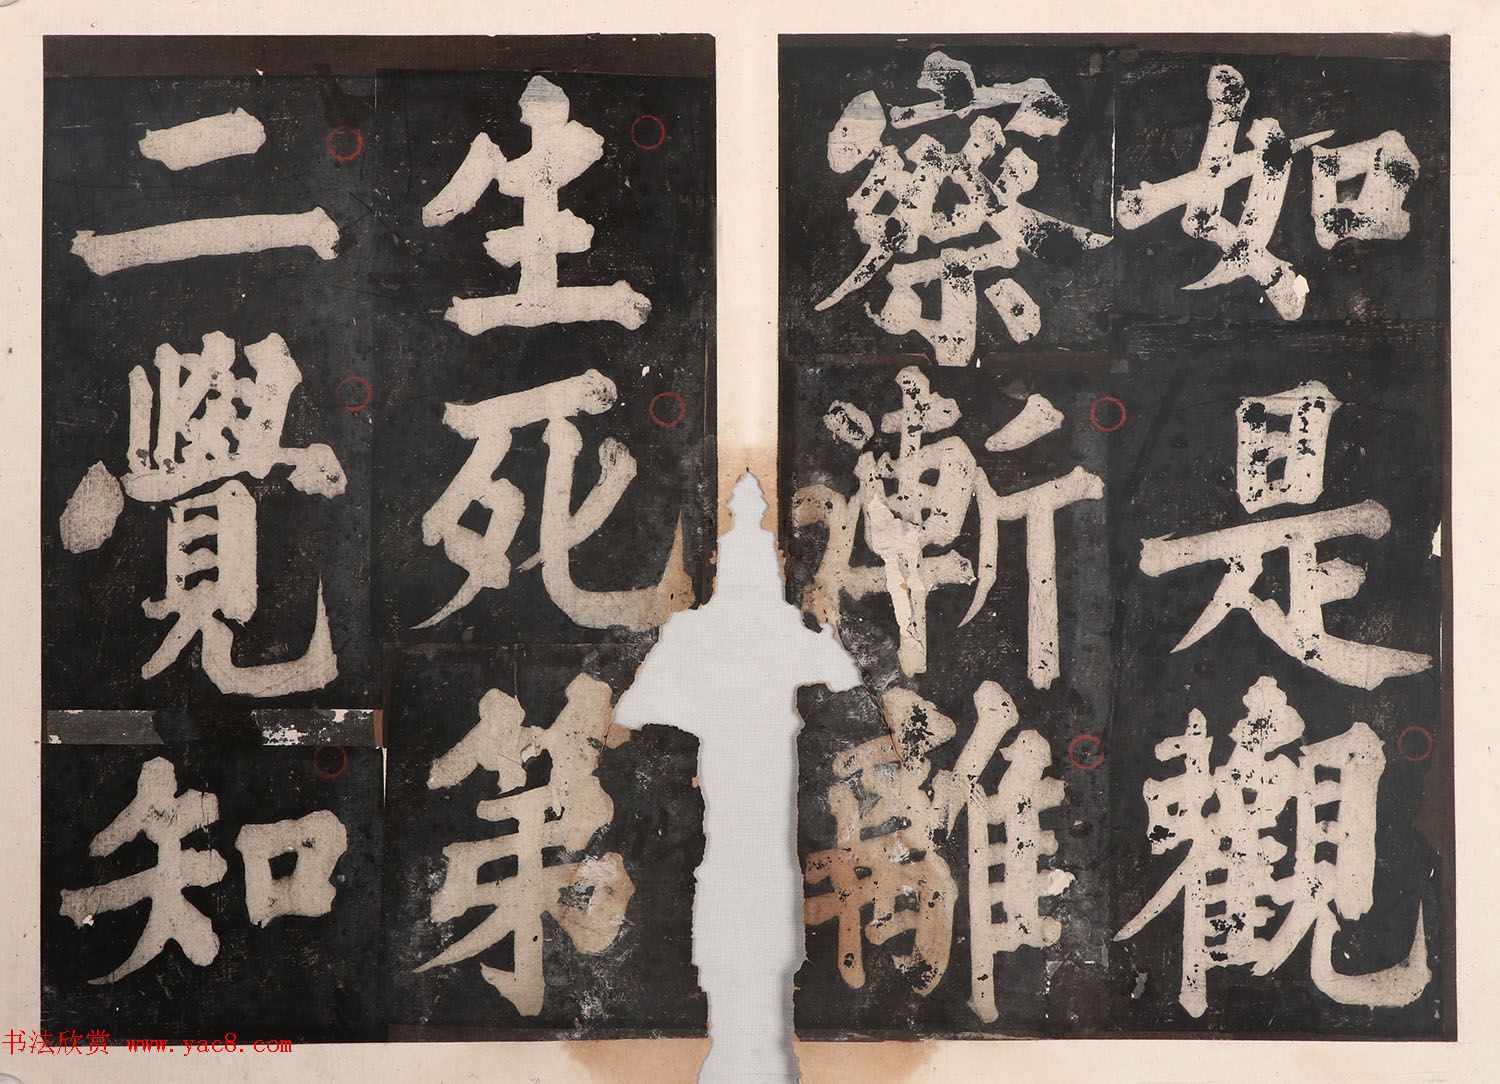 如是觀
察漸離
生死第
二覺知
书法欣赏 www.yac8.com